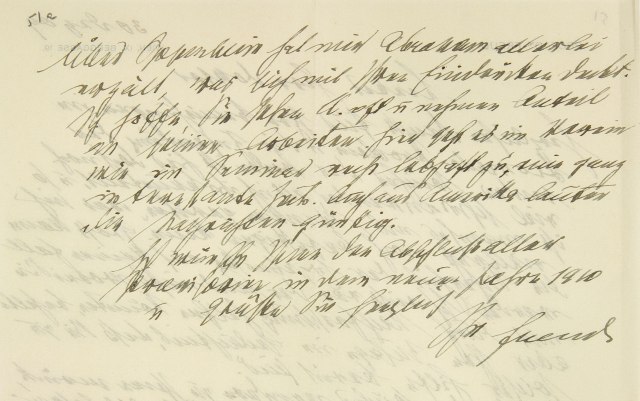 51a
Über Oppenheim hat mir Abraham allerlei
erzählt, was sich mit Ihren Eindrücken deckt.
Ich hoffe Sie sehen A. oft u nehmen Anteil
an seinen Arbeiten. Hier geht es im Verein
wie im Seminar recht lebhaft zu, eine ganz
interessante Auch aus Amerika lauten
die Nachrichten günstig.
Ich wünsche Ihnen den Abschluß aller
Provisorien in dem neuen Jahre 1910
u grüße Sie herzlich
Ihr Freud